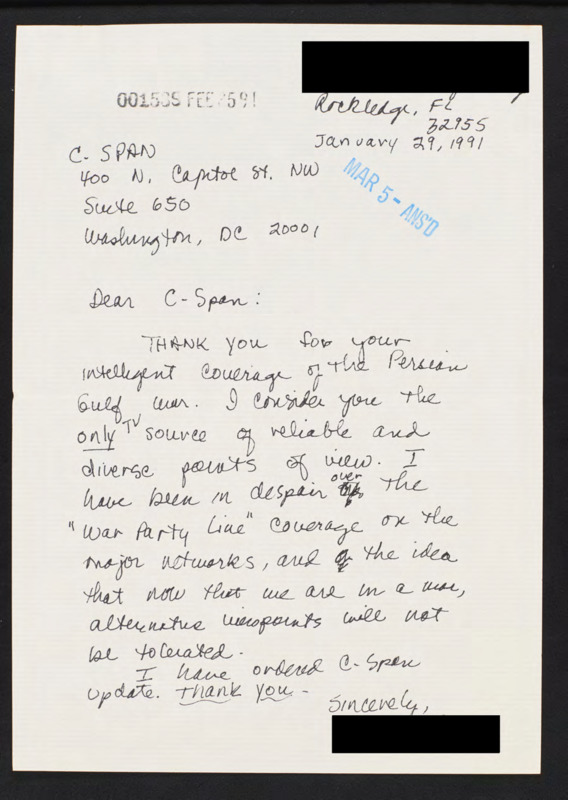 001505 FEB 25 91
Rockledge, FL
32955
January 29, 1991
MAR 5 - ANS'D
C-SPAN
400 N. Capitol St. NW
Suite 650
Washington, DC 20001
Dear C-Span:
THANK YOU for your
intelligent coverage of the Persian
Gulf war. I consider you the
only TV source of reliable and
diverse points of view. I
have been in despair over the
"War Party Line" coverage on the
major networks, and the idea
that now that we are in a war,
alternative viewpoints will not
be tolerated.
I have ordered C-Span
update. Thank you -
Sincerely,